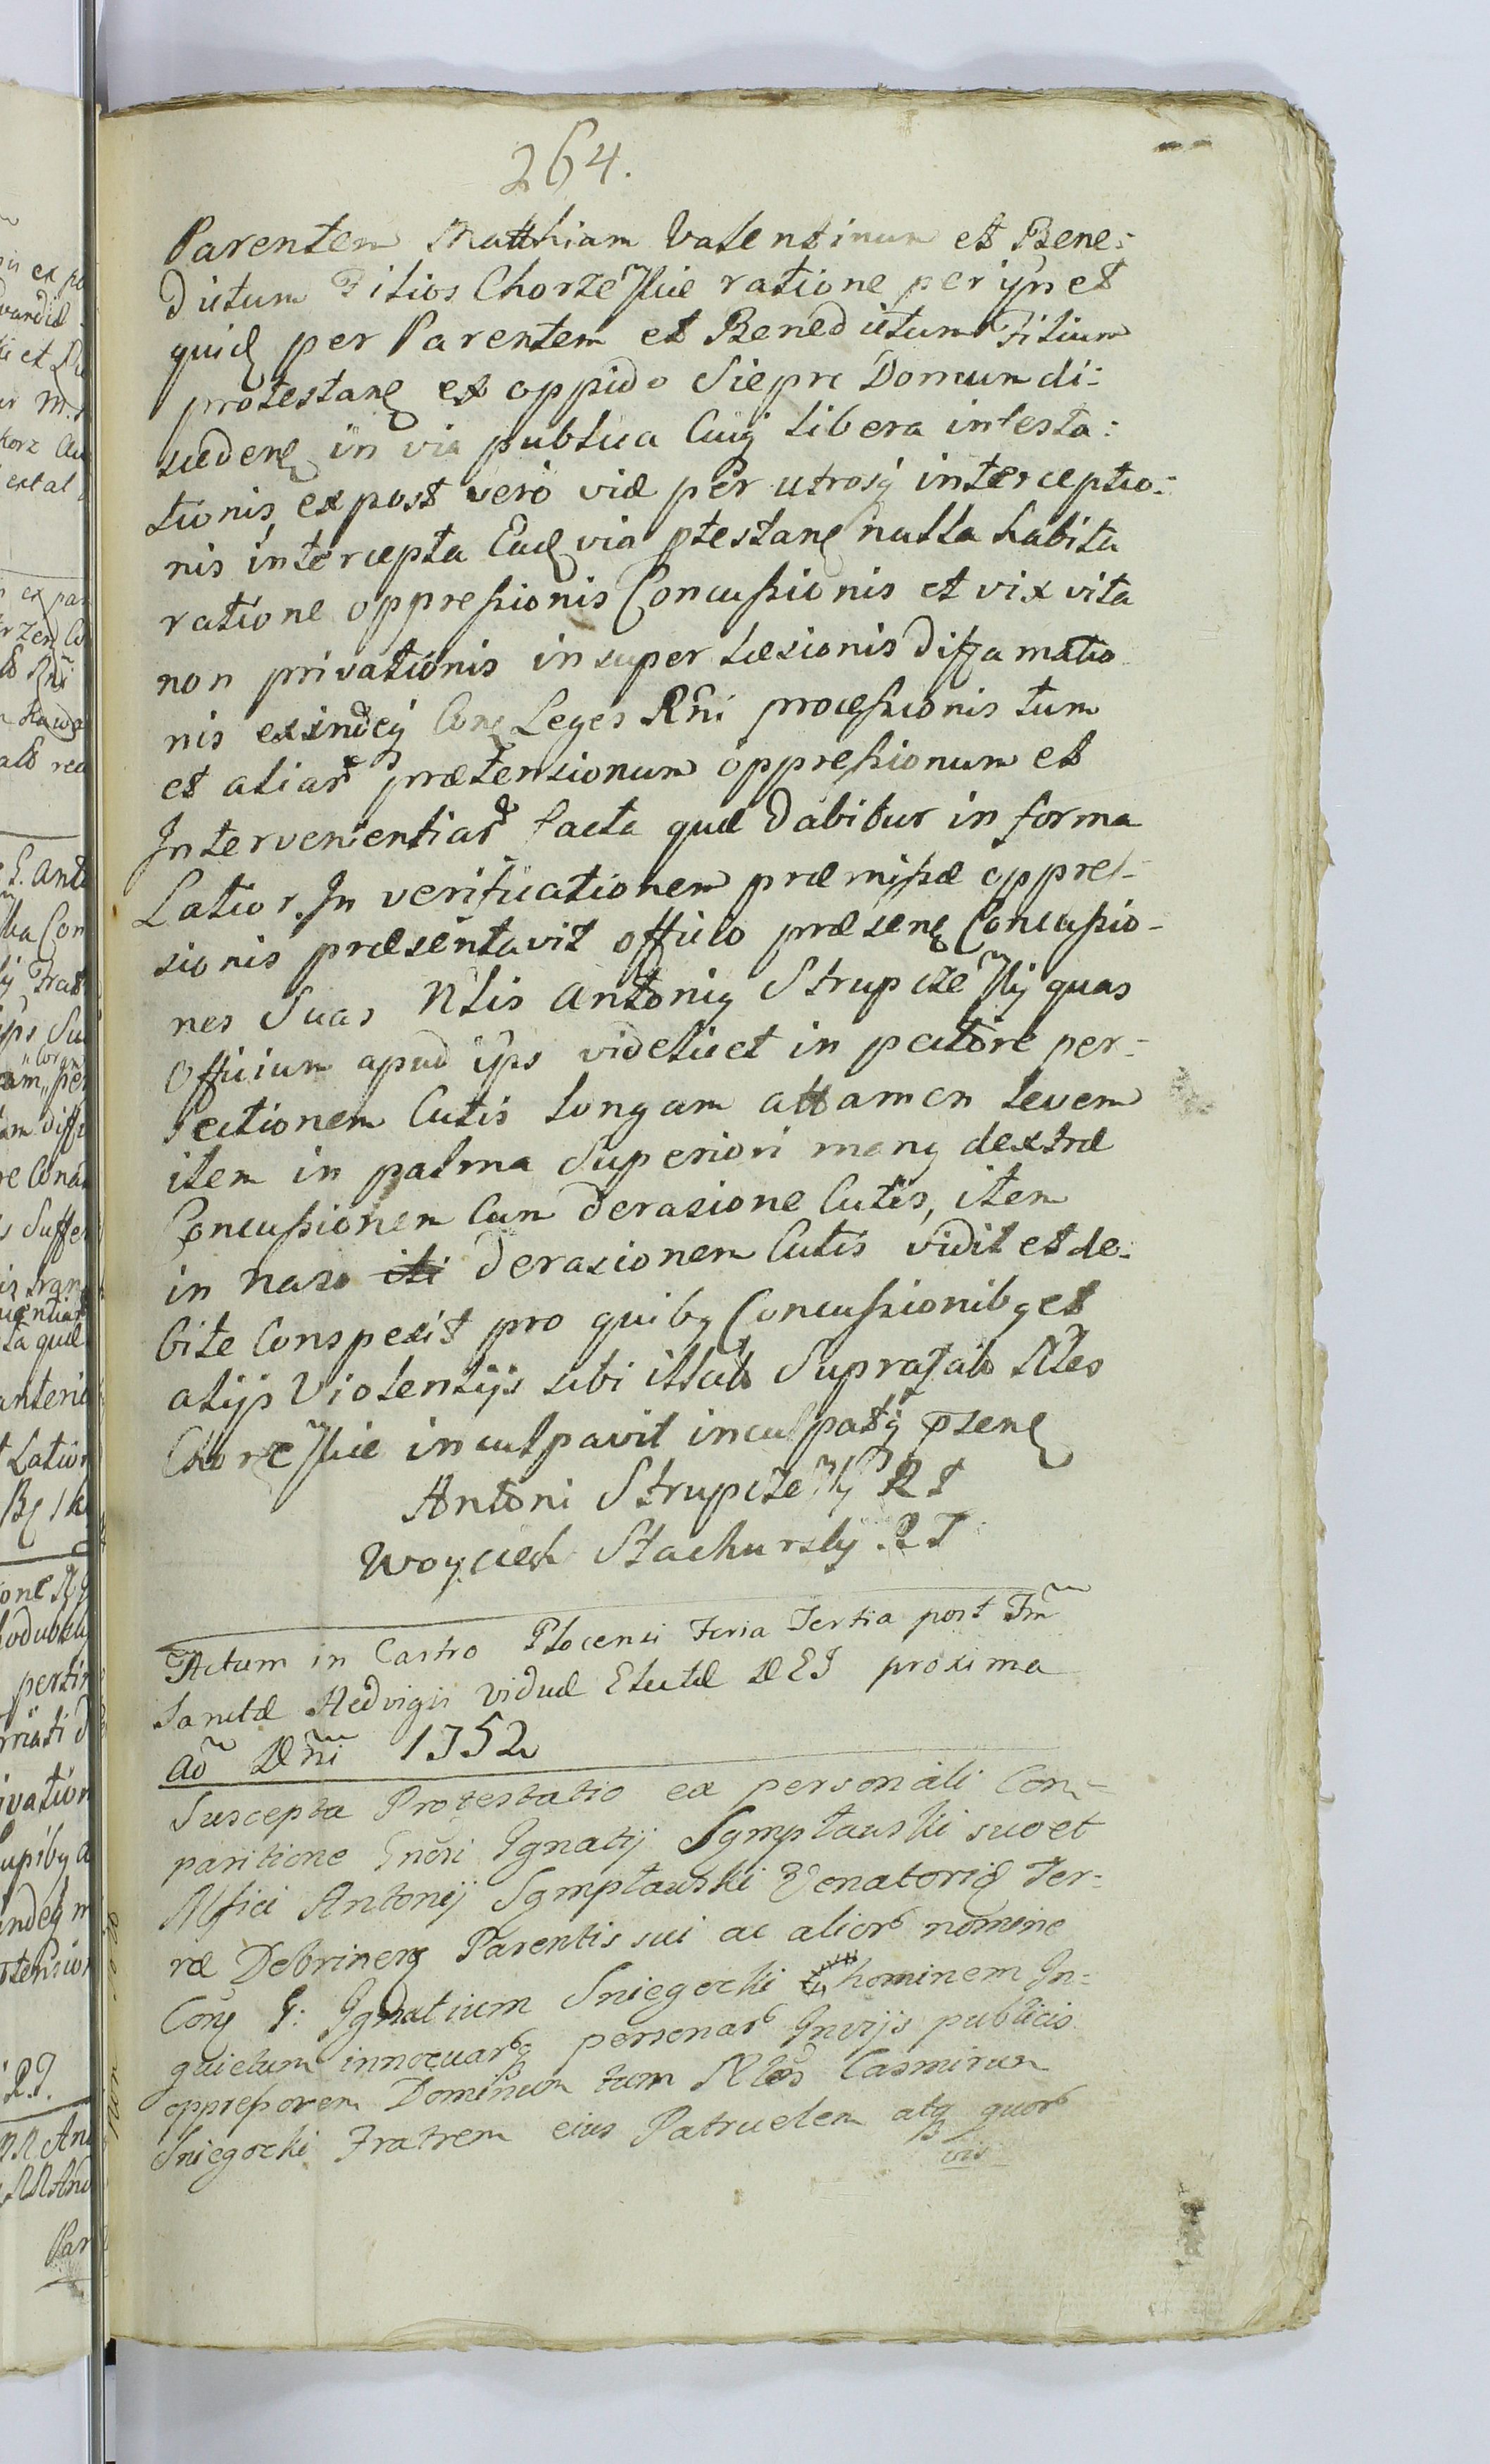 264.
Parentem Matthiam Valentinum et Bene:
dictum Filios Chorzewskie ratione per ipsos et
quid per Parentem et Benedictum Filium
protestane ex oppido Sieprc Domum di:
scedene in via publica Cuiq libera infesta:
tionis expost vero viæ per utrosq interceptio:
nis intercepta Ead via ptestane nulla habita
ratione oppressionis Concussionis et vix vita
non privationis insuper læsionis diffamatio
nis exindeq Con Leges Rni processionis tum
et aliar prætensionum oppressionum et
Intervenientiar facta quæ dabitur in forma
Latior. In verificationem præmissæ oppres-
sionis præsentavit officio præsene Concussio-
nes Suas Nlis Antonig Strupczewskij quas
Officium apud ips videlicet in pectore per-
fectionem Cutis longam attamen levem
item in palma Superiori mang dextræ
Concussionem Cum derasione Cutis, item
in naso iti derasionem Cutis vidit et de-
bite Conspexit pro quibg Concussionibg et
alijs Violentijs sibi illatis Supra Nles
Chorzewskie inculpavit inculpatq psene
Antoni Strupczewsky RS
Woyciech Stachursky RS
Actum in Castro Plocensi Feria Tertia post Fm
Sanctæ Hedvigis Viduæ Electæ DEI proxima
Ao Dni 1752
Suscepta Protestatio ex personali Com-
paritione Gnosi Ignatij Sgmpławski suo et
Mfici Antonij Sgmpławski Venatorid Ter-
ræ Dobrinens Parentis sui ac alior nomine
Cong G: Ignatium Sniegocki hominem In-
quietum innocuarq personar Inviis publicis
oppressorem Dominum tum Nlos Casmirum
Sniegocki Fratrem eius Patruelem atq quor
vis